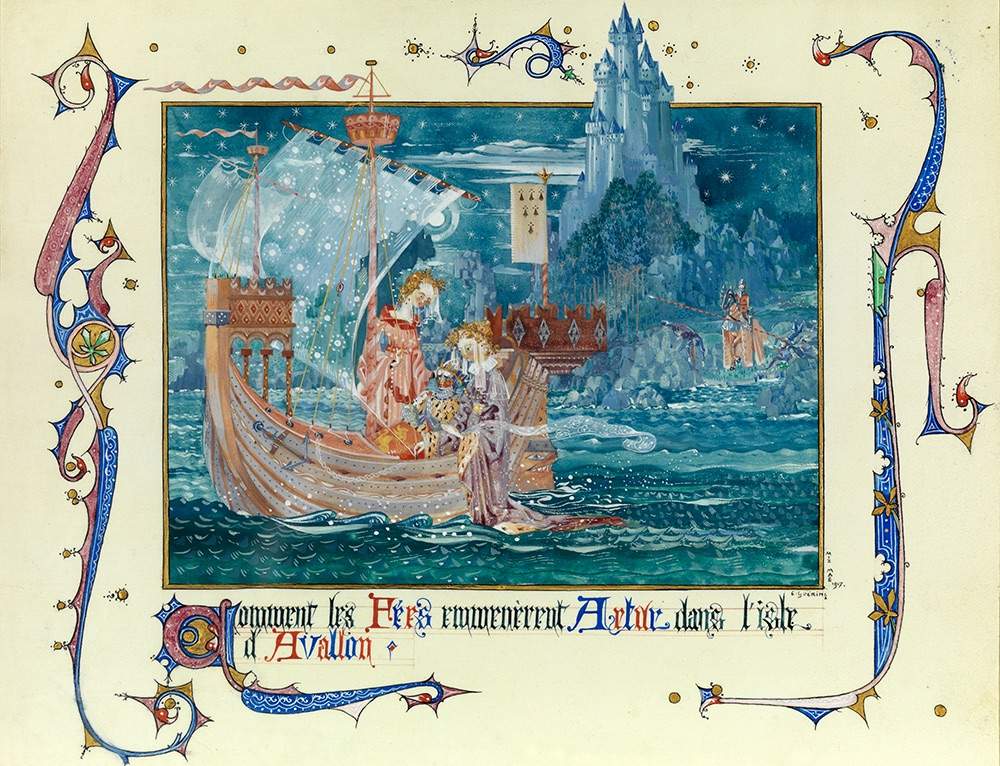 Comment les Fées emmenèrent Artur dans l'isle
d'Avallon